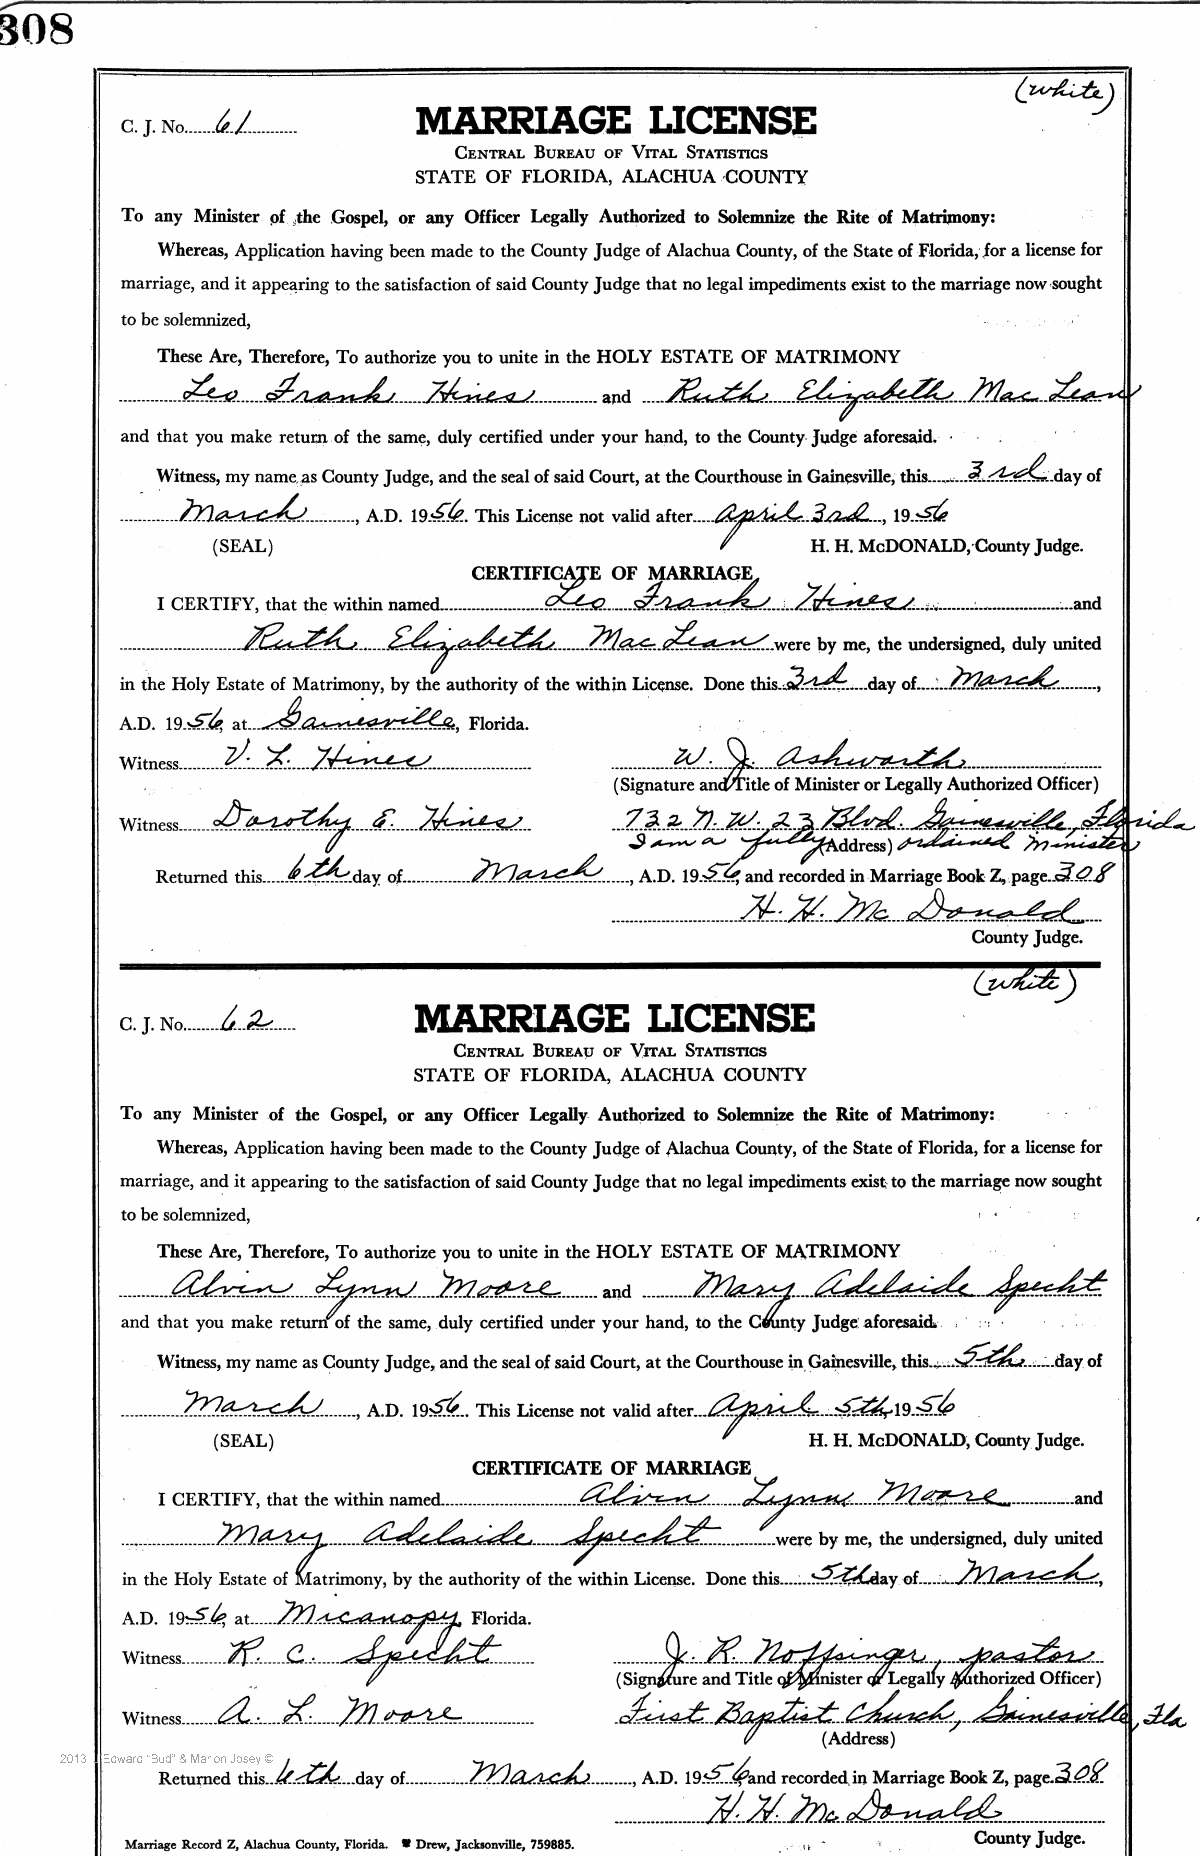 308
(white)
C. J. No. 61
MARRIAGE LICENSE
CENTRAL BUREAU OF VITAL STATISTICS
STATE OF FLORIDA, ALACHUA COUNTY
To any Minister of the Gospel, or any Officer Legally Authorized to Solemnize the Rite of Matrimony:
Whereas, Application having been made to the County Judge of Alachua County, of the State of Florida, for a license for
marriage, and it appearing to the satisfaction of said County Judge that no legal impediments exist to the marriage now sought
to be solemnized,
These Are, Therefore, To authorize you to unite in the HOLY ESTATE OF MATRIMONY
Leo Frank Hines and Ruth Elizabeth Mac Lean
and that you make return of the same, duly certified under your hand, to the County Judge aforesaid.
Witness, my name as County Judge, and the seal of said Court, at the Courthouse in Gainesville, this 3rd day of
March, A.D. 1956. This License not valid after April 3rd, 1956
(SEAL) H. H. McDONALD, County Judge.
CERTIFICATE OF MARRIAGE
I CERTIFY, that the within named Leo Frank Hines and
Ruth Elizabeth Mac Lean were by me, the undersigned, duly united
in the Holy Estate of Matrimony, by the authority of the within License. Done this 3rd day of March,
A.D. 1956, at Gainesville, Florida.
Witness V. L. Hines W. J. Ashworth
(Signature and Title of Minister or Legally Authorized Officer)
Witness Dorothy E. Hines 732 N. W. 23 Blvd. Gainesville, Florida
I am a fully (Address) ordained Minister
Returned this 6th day of March, A.D. 1956, and recorded in Marriage Book Z, page 308
H. H. Mc Donald
County Judge.
(white)
C. J. No. 62
MARRIAGE LICENSE
CENTRAL BUREAU OF VITAL STATISTICS
STATE OF FLORIDA, ALACHUA COUNTY
To any Minister of the Gospel, or any Officer Legally Authorized to Solemnize the Rite of Matrimony:
Whereas, Application having been made to the County Judge of Alachua County, of the State of Florida, for a license for
marriage, and it appearing to the satisfaction of said County Judge that no legal impediments exist to the marriage now sought
to be solemnized,
These Are, Therefore, To authorize you to unite in the HOLY ESTATE OF MATRIMONY
Alvin Lynn Moore and Mary Adelaide Specht
and that you make return of the same, duly certified under your hand, to the County Judge aforesaid.
Witness, my name as County Judge, and the seal of said Court, at the Courthouse in Gainesville, this 5th day of
March, A.D. 1956. This License not valid after April 5th, 1956
(SEAL) H. H. McDONALD, County Judge.
CERTIFICATE OF MARRIAGE
I CERTIFY, that the within named Alvin Lynn Moore and
Mary Adelaide Specht were by me, the undersigned, duly united
in the Holy Estate of Matrimony, by the authority of the within License. Done this 5th day of March,
A.D. 1956, at Micanopy, Florida.
Witness R. C. Specht J. R. Noffsinger, pastor
(Signature and Title of Minister or Legally Authorized Officer)
Witness A. L. Moore First Baptist Church, Gainesville, Fla
(Address)
2013 Edward "Bud" & Marion Josey ©
Returned this 6th day of March, A.D. 1956, and recorded in Marriage Book Z, page 308
H. H. Mc Donald
County Judge.
Marriage Record Z, Alachua County, Florida. Drew, Jacksonville, 759885.